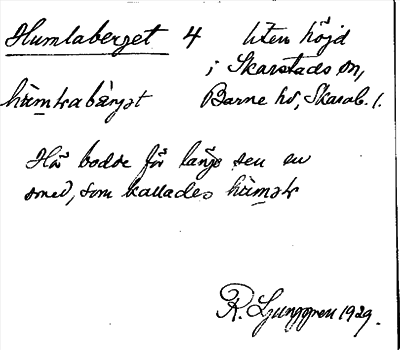 Humlaberget 4 liten höjd
i Skarstads sn,
hùmlrabærjət Barne hd, Skarab. l.
Här bodde för länge sen en
smed, som kallades hùmələr
R. Ljunggren 1929.